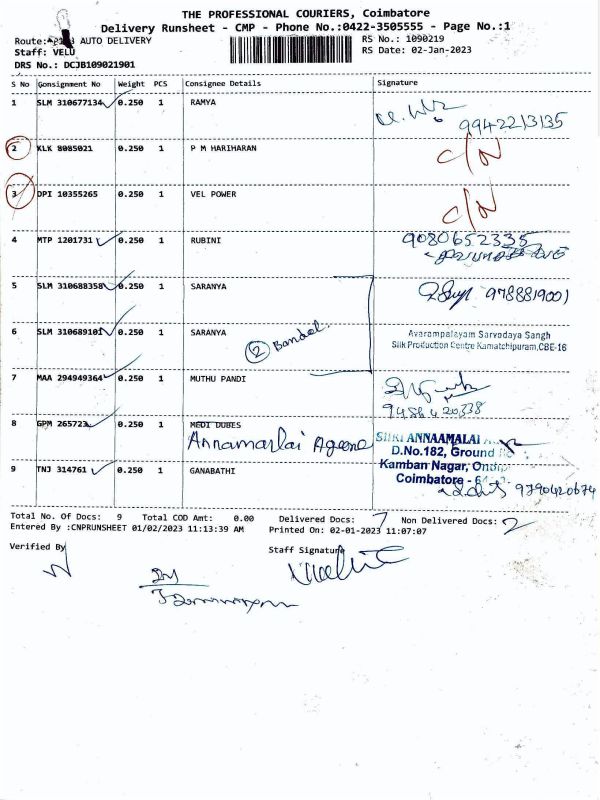 THE PROFESSIONAL COURIERS, Coimbatore
Delivery Runsheet - CMP - Phone No.:0422-3505555 - Page No.:1
Route: AUTO DELIVERY
RS No.: 1090219
Staff: VELU
RS Date: 02-Jan-2023
DRS No.: DCJB109021901
S No Consignment No Weight PCS Consignee Details Signature
1 SLM 310677134 0.250 1 RAMYA
9942213135
2 KLK 8085021 0.250 1 P M HARIHARAN C/N
3 DPI 10355265 0.250 1 VEL POWER C/N
4 MTP 1201731 0.250 1 RUBINI 9080652335
5 SLM 310688358 0.250 1 SARANYA 9788819001
6 SLM 310689101 0.250 1 SARANYA
2 Bandel
Avarampalayam Sarvodaya Sangh
Silk Production Centre Kamatchipuram,CBE-16
7 MAA 294949364 0.250 1 MUTHU PANDI
9486420338
8 GPM 265723 0.250 1 MEDI DUBES
Annamarlai Ageene
SHRI ANNAAMALAI
D.No.182, Ground
Kamban Nagar,
Coimbatore - 6
9 TNJ 314761 0.250 1 GANABATHI 9790420674
Total No. Of Docs: 9 Total COD Amt: 0.00 Delivered Docs: 7 Non Delivered Docs: 2
Entered By :CNPRUNSHEET 01/02/2023 11:13:39 AM Printed On: 02-01-2023 11:07:07
Verified By
Staff Signature